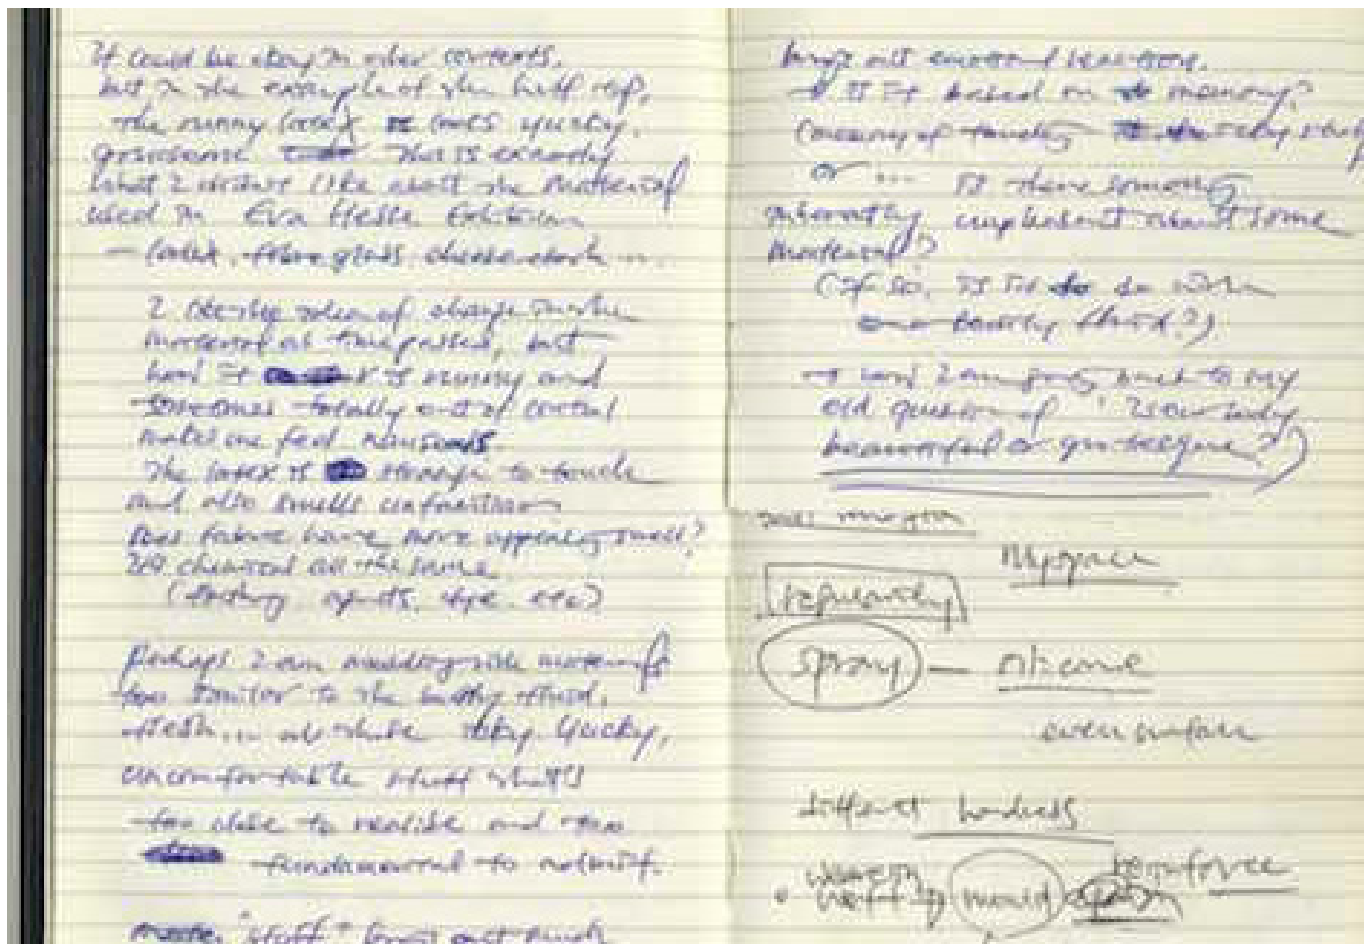 It could be okay in other contexts,
but in the example of the half
the runny latex looks yucky,
gruesome This is exactly
what I didn't like about the material
used in Eva Hesse Exhibition
— latex, fibreglass, cheesecloth ...
I like the idea of change in the
material as time passed, but
how it is runny and
sometimes totally out of control
makes me feel nauseous.
The latex is strange to touch
and also smells unfamiliar
Does fabric have more appealing smell?
It's chemical all the same
(coating, agents, dye, etc)
Perhaps I am with materials
too similar to the bodily fluid,
flesh... all those icky. Yucky,
uncomfortable stuff that's
too close to realise and too
fundamental to
more, "stuff" brings out much
brings out emotional
→ Is it based on memory?
(memory of touching stuff
or ... Is there something
inherently unpleasant about some
material?
(If so, is it to do with
bodily fluid?)
→ and I am going back to my
old question of 'Is our body
beautiful or grotesque?')
Myspace
regularity
spray — silicone
even surface
different hardness
reinforce
mould